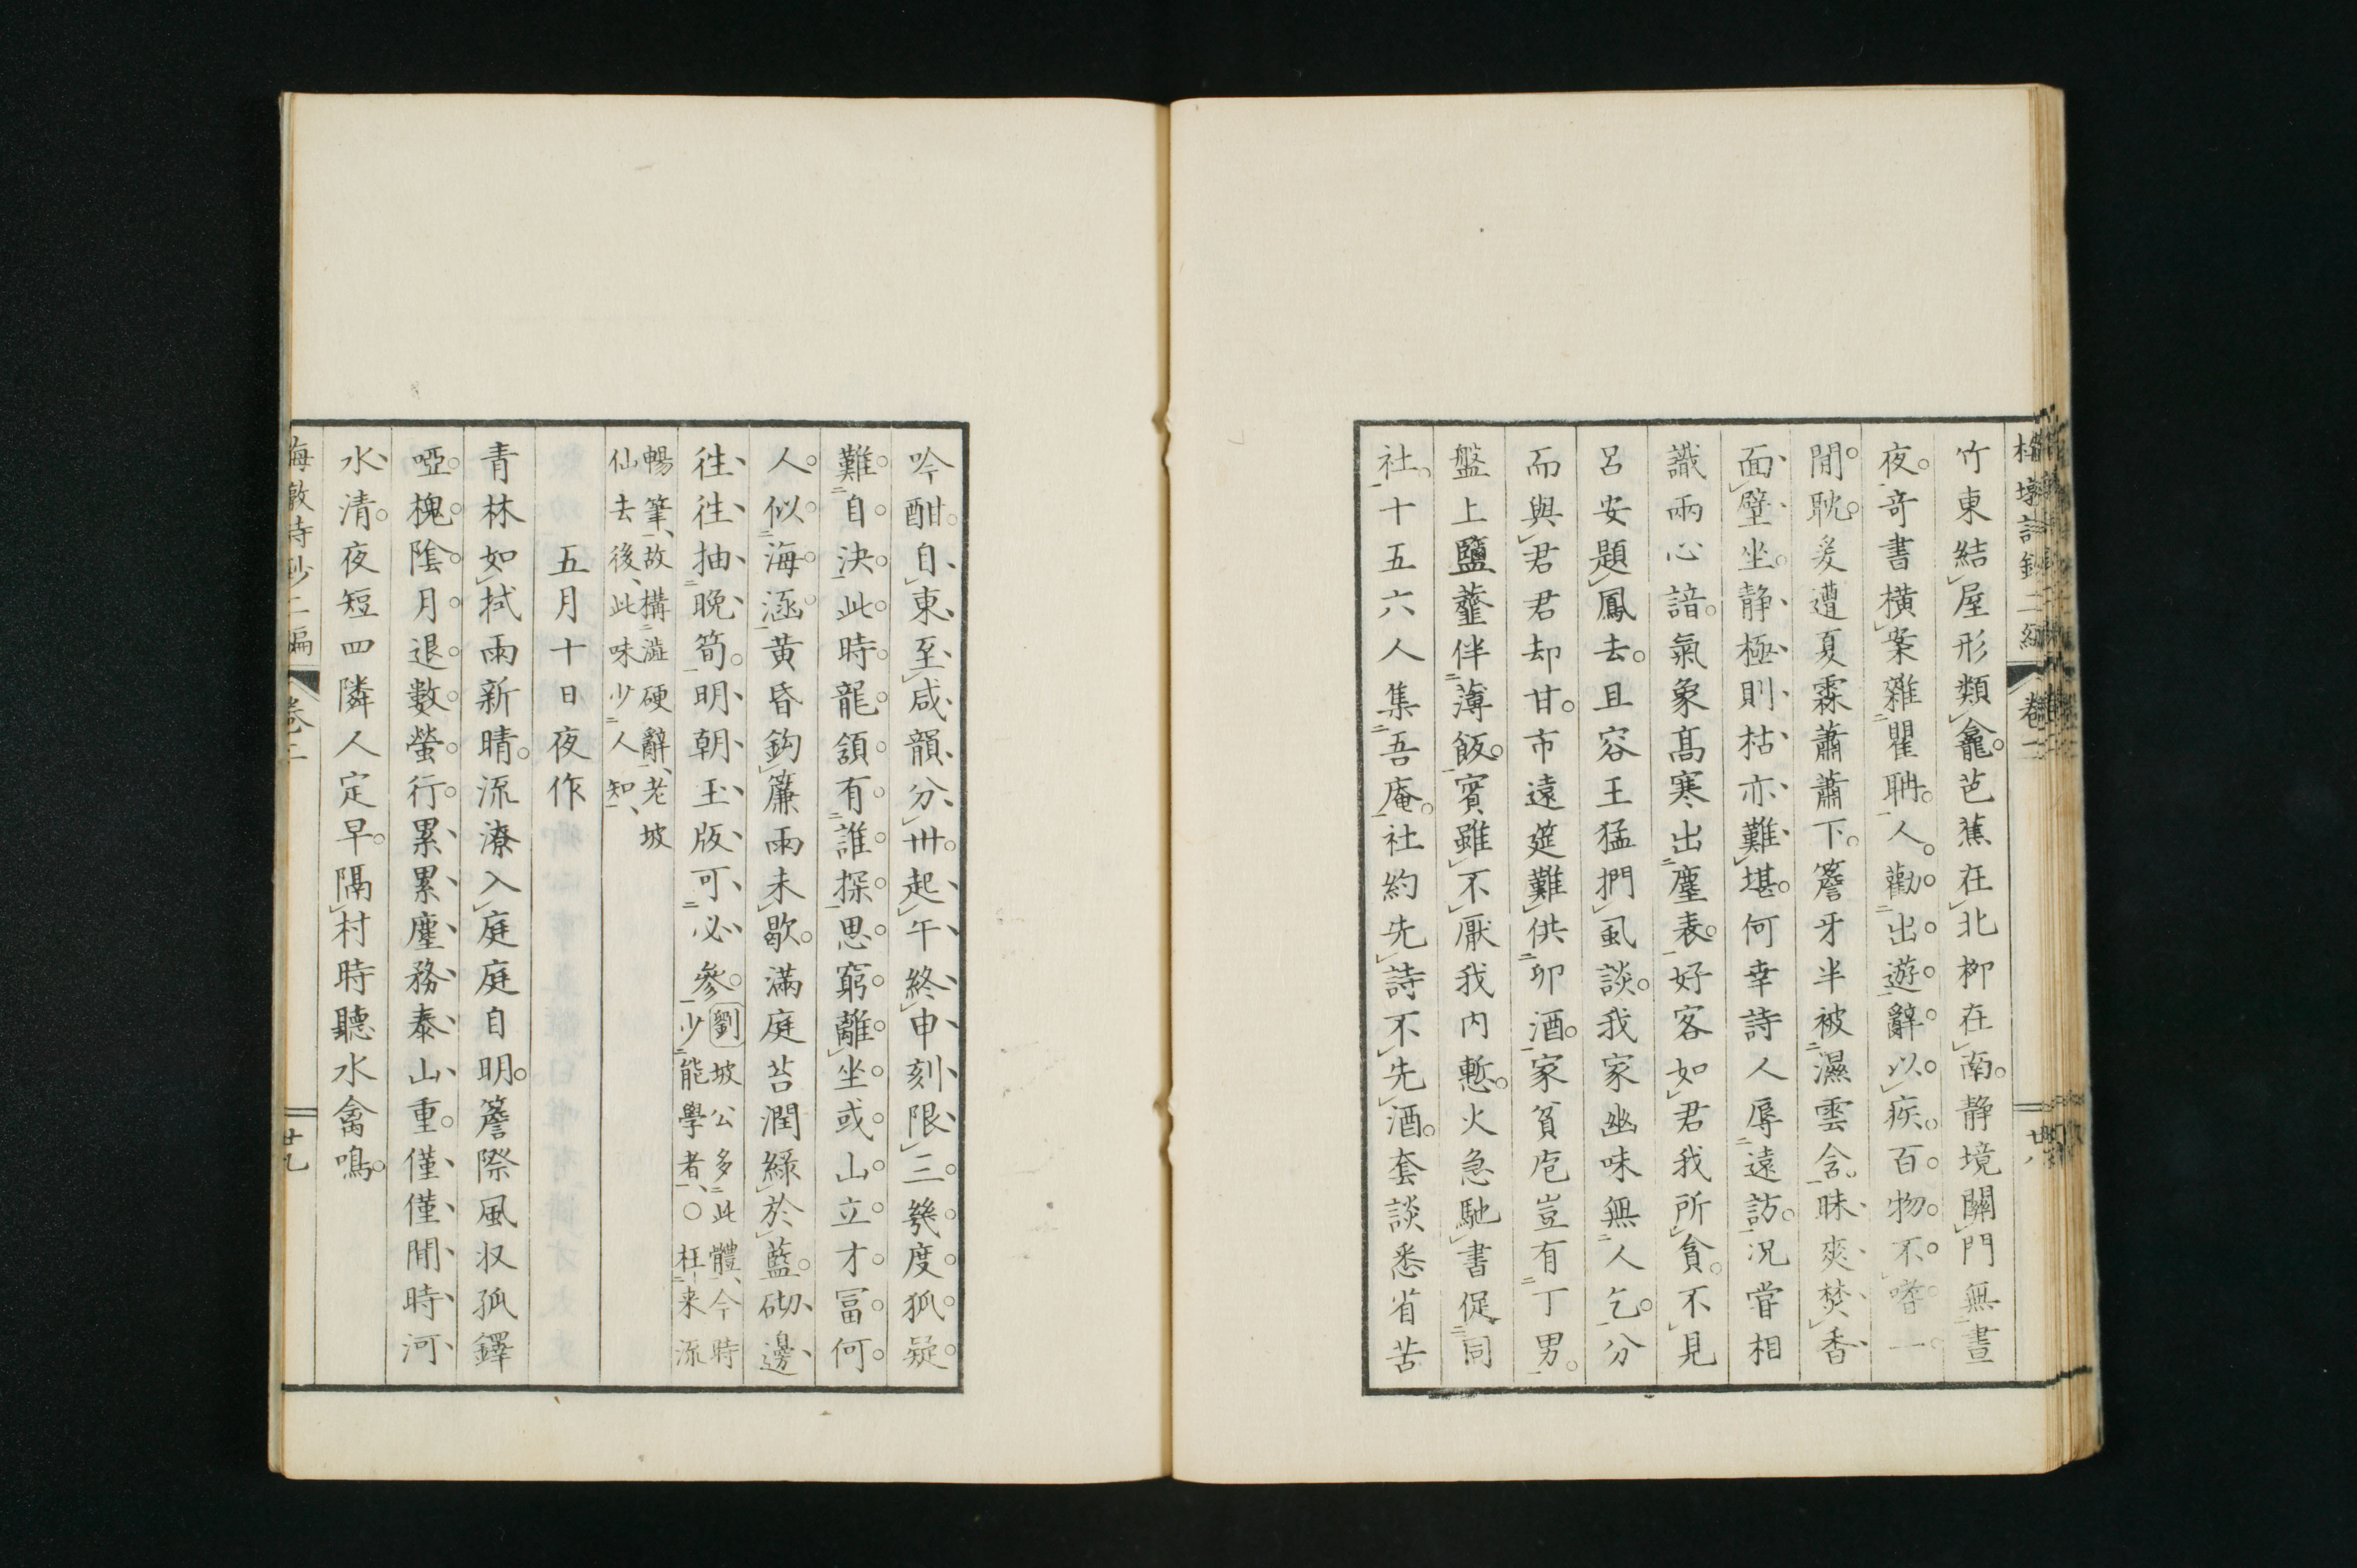 竹東結屋形類龕芭蕉在北柳在南静境關門無晝
夜奇書横案雜瞿聃人勸出遊辭以疾百物不嗜一
閒耽爰遭夏霖蕭蕭下簷牙半被濕雲含昧爽焚香
面壁坐静極則枯亦難堪何幸詩人辱遠訪况嘗相
識兩心諳氣象髙寒出塵表好客如君我所貪不見
呂安題鳳去且容王猛捫虱談我家幽味無人乞分
而與君君却甘市遠筵難供卯酒家貧庖豈有丁男
盤上鹽虀伴薄飯賓雖不厭我内慙火急馳書促同
社十五六人集吾庵社約先詩不先酒套談悉省苦
吟酣自東至咸韻分卅起午終申刻限三幾度狐疑
難自決此時龍頷有誰探思窮離坐或山立才冨何
人似海涵黄昏鈎簾雨未歇滿庭苔潤緑於藍砌邊
徃徃抽晩筍明朝玉版可必參
劉坡公多此體今時
少能學者○枉来流
暢筆故構澁硬辭老坡
仙去後此味少人知
五月十日夜作
青林如拭雨新晴流潦入庭庭自明簷際風収孤鐸
啞槐陰月退數螢行累累塵務泰山重僅僅閒時河
水清夜短四隣人定早隔村時聽水禽鳴
梅墩詩鈔二編 卷二 廿九